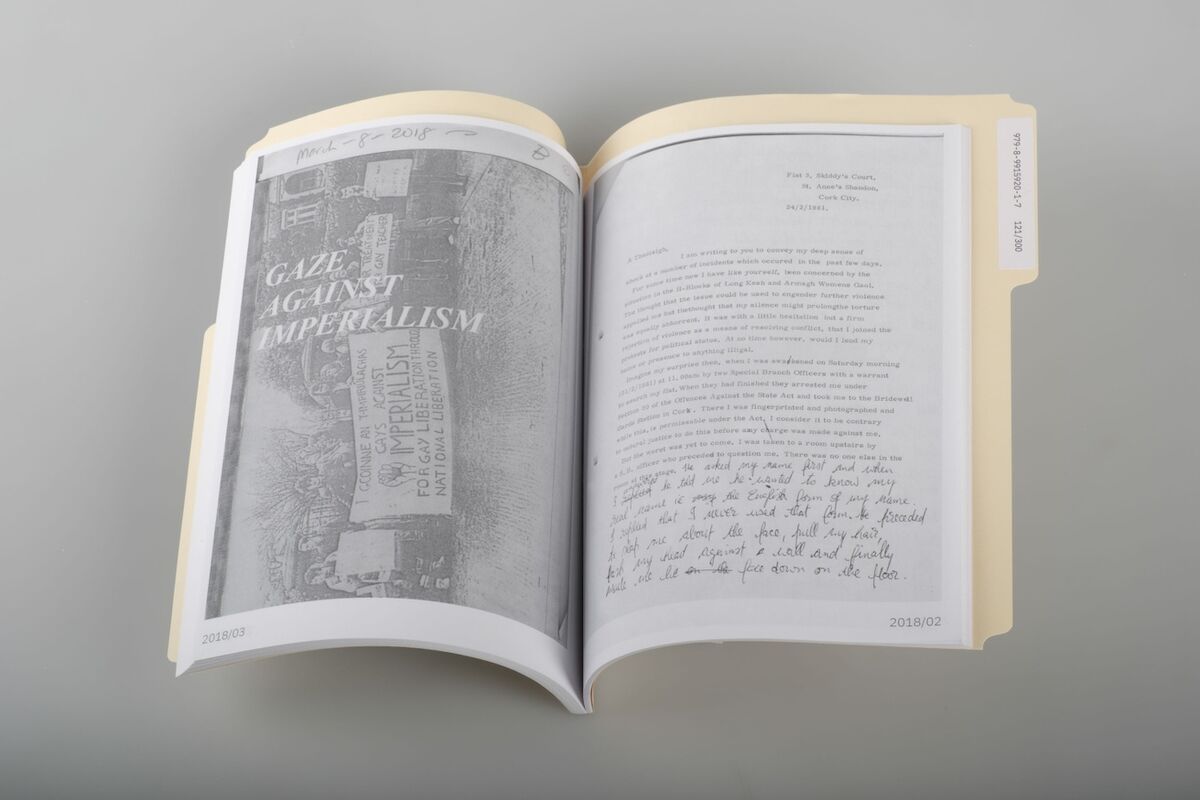 March - 8 - 2018
GAZE
AGAINST
IMPERIALISM
TREATMENT
GAY TEACHER
I GCOINNE AN IMPIRÚLACHAS
GAYS AGAINST
IMPERIALISM
FOR GAY LIBERATION THROUGH
NATIONAL LIBERATION
2018/03
Flat 3, Skiddy's Court,
St. Anne's Shandon,
Cork City.
24/2/1981.
A Thaoisigh,
I am writing to you to convey my deep sense of
shock at a number of incidents which occured in the past few days.
For some time now I have like yourself, been concerned by the
situation in the H-Blocks of Long Kesh and Armagh Womens Gaol.
The thought that the issue could be used to engender further violence
appalled me but thethought that my silence might prolongthe torture
was equally abhorrent. It was with a little hesitation but a firm
rejection of violence as a means of resolving conflict, that I joined the
protests for political status. At no time however, would I lend my
name or presence to anything illigal.
Imagine my surprise then, when I was awakened on Saturday morning
(21/2/1981) at 11.00am by two Special Branch Officers with a warrant
to search my flat. When they had finished they arrested me under
Section 30 of the Offences Against the State Act and took me to the Bridewell
Garda Station in Cork. There I was fingerprinted and photographed and
while this, is permissable under the Act, I consider it to be contrary
to natural justice to do this before any charge was made against me.
But the worst was yet to come. I was taken to a room upstairs by
a S.B. officer who preceded to question me. There was no one else in the
room at this stage. He asked my name first and when
I he told me he wanted to know my
real name ie the English form of my name.
I replied that I never used that form. He preceded
to slap me about the face, pull my hair,
bash my head against a wall and finally
made me lie face down on the floor.
2018/02
979-8-9915920-1-7 121/300